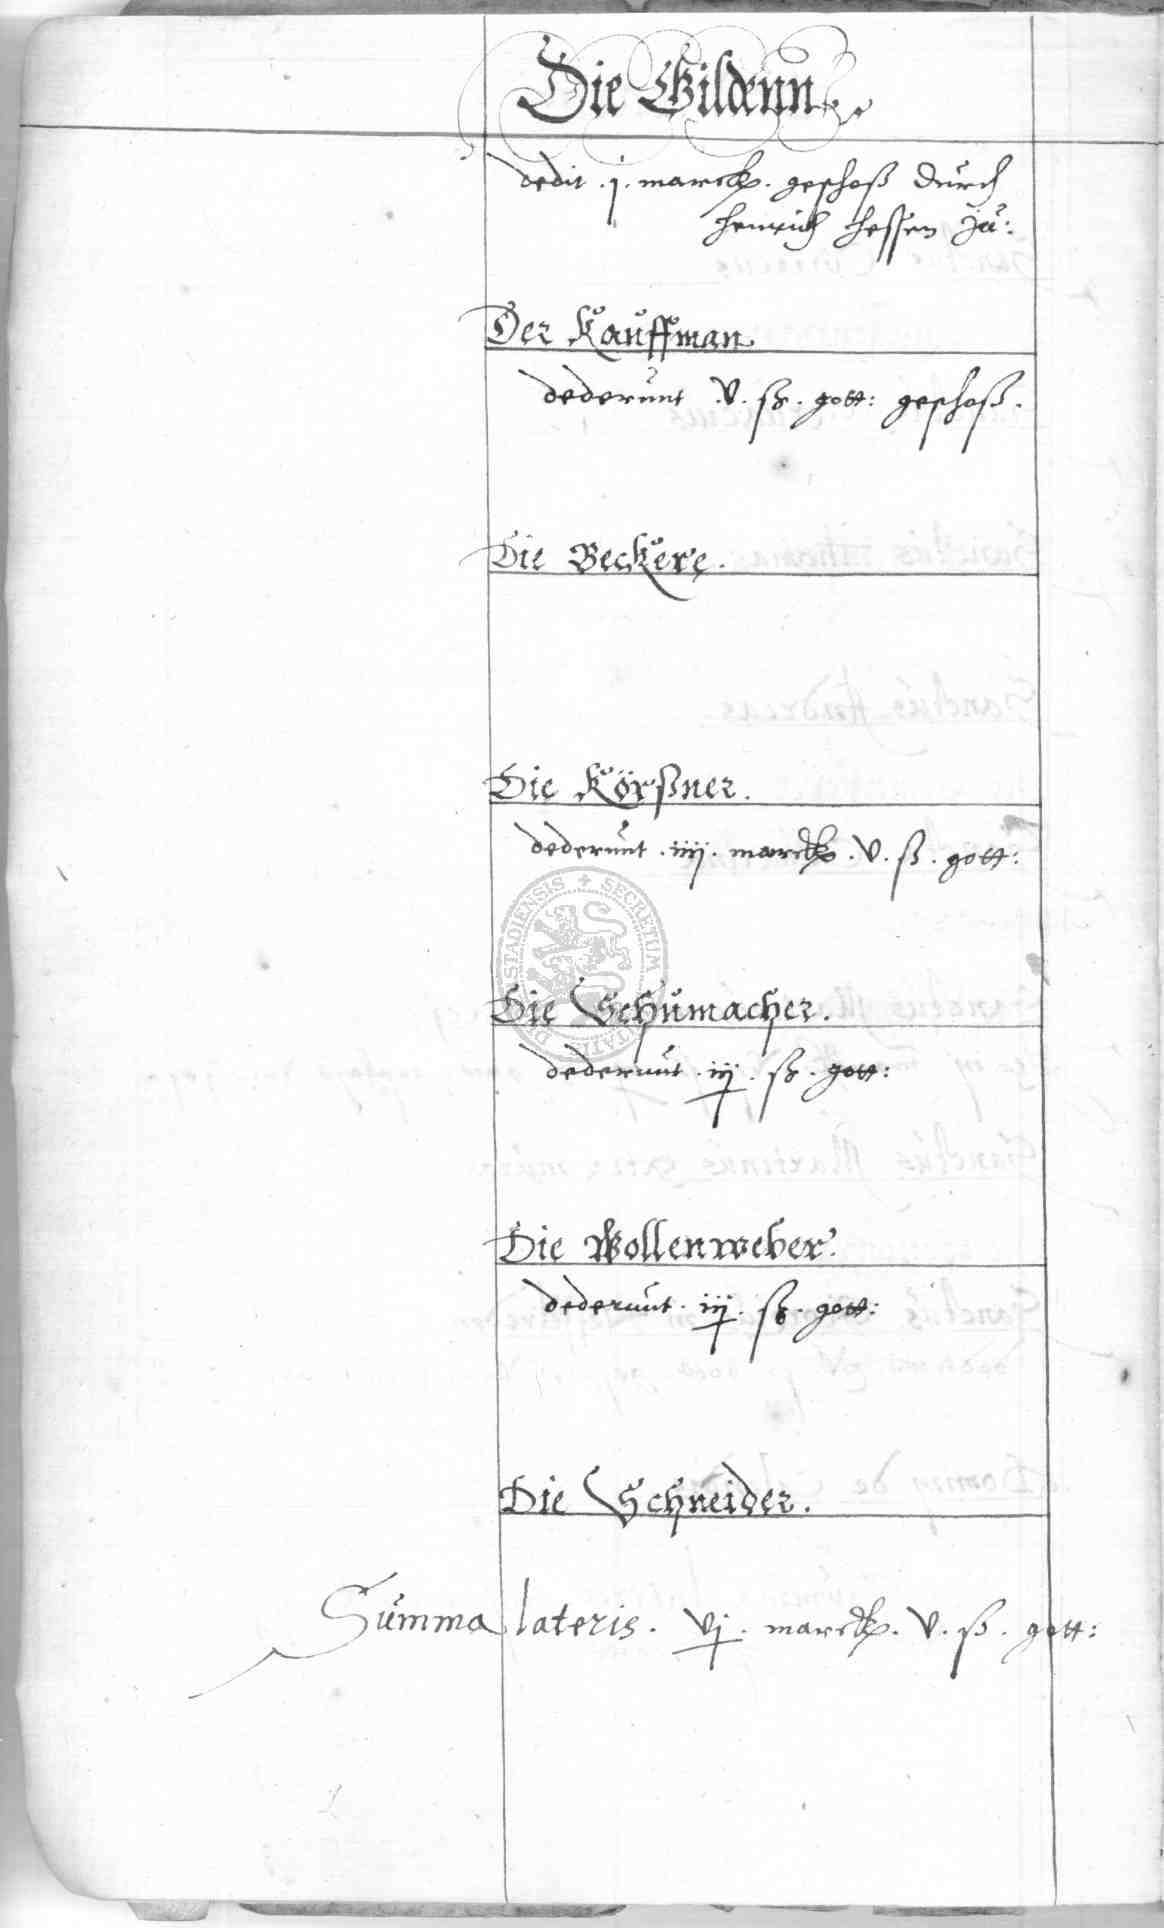 Die Gildenn
dedit . j . marck . geschoß durch
Henrich Hessen Ju:
Der Kauffman
dederunt . v . ß . gott: geschoß .
Die Beckere .
Die Körßner .
dederunt . iiij . marck . v . ß . gott:
STADIENSIS + SECRETUM
Die Schumacher .
dederunt . iij . ß . gott:
Die Wollenweber .
dederunt . iij . ß . gott:
Die Schneider .
Summa lateris . vj . marck . v . ß . gott: